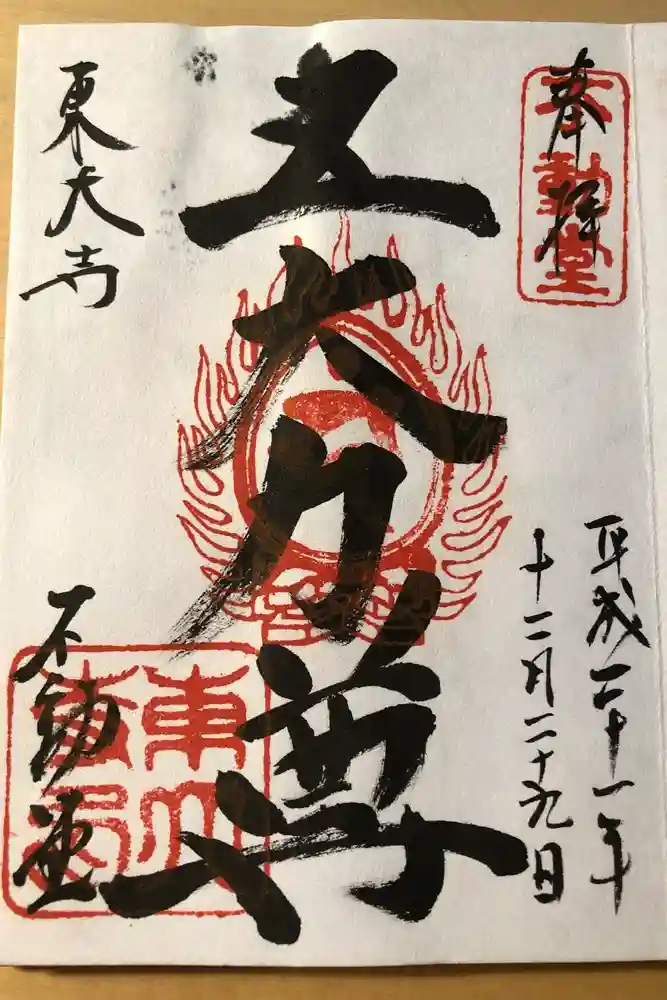 奉拝
不動堂
平成二十一年
十二月二十九日
五大力尊
東大寺
不動堂